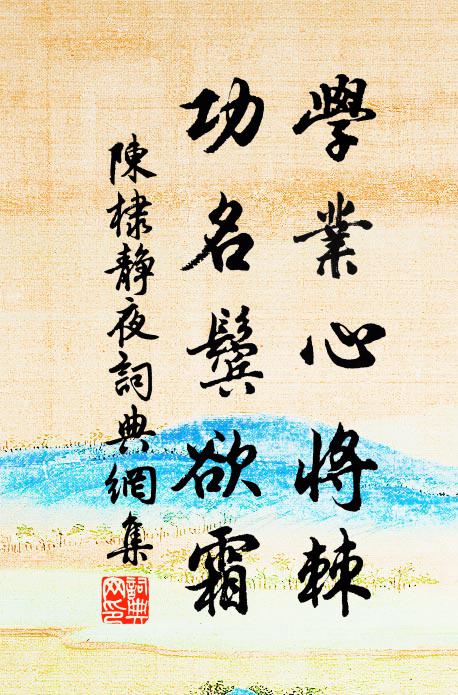 學業心將棘
功名鬢欲霜
陳棣靜夜詞典網集
詞典